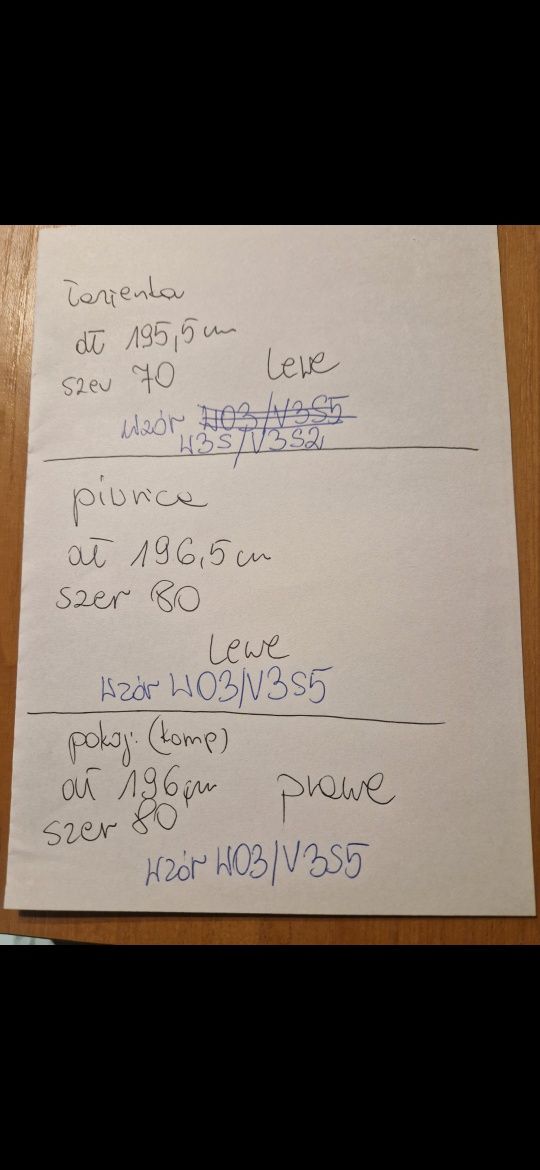 łazienka
dł 195,5 cm
szer 70 lewe
wzór W03/V3S5
W3S/V3S2
piwnica
dł 196,5 cm
szer 80
lewe
wzór W03/V3S5
pokój (komp)
dł 196 cm prawe
szer 80
wzór W03/V3S5